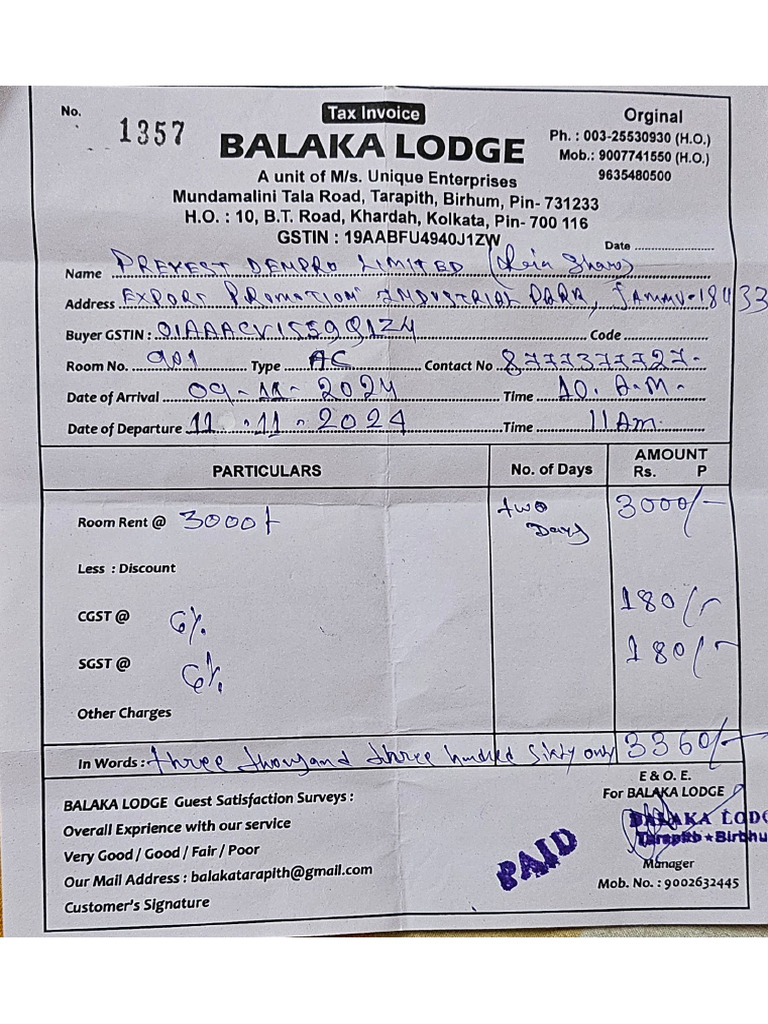 No. 1357
Tax Invoice
Orginal
BALAKA LODGE
Ph. : 003-25530930 (H.O.)
Mob.: 9007741550 (H.O.)
9635480500
A unit of M/s. Unique Enterprises
Mundamalini Tala Road, Tarapith, Birhum, Pin- 731233
H.O. : 10, B.T. Road, Khardah, Kolkata, Pin- 700 116
GSTIN : 19AABFU4940J1ZW
Date ....................
Name PREVEST DENPRO LIMITED
Address EXPORT PROMOTION INDUSTRIAL PARK, JAMMU-18433
Buyer GSTIN : 01AAACV1559Q1Z4 Code ....................
Room No. 901 Type AC Contact No 8777377727-
Date of Arrival 09-11-2024 Time 10. A.M.
Date of Departure 11-11-2024 Time 11 Am
PARTICULARS No. of Days AMOUNT
Rs. P
Room Rent @ 3000/- two Days 3000/-
Less : Discount
CGST @ 6% 180/-
SGST @ 6% 180/-
Other Charges
In Words : three thousand three hundred sixty only 3360/-
BALAKA LODGE Guest Satisfaction Surveys :
Overall Exprience with our service
Very Good / Good / Fair / Poor
Our Mail Address : balakatarapith@gmail.com
Customer's Signature
PAID
E & O. E.
For BALAKA LODGE
BALAKA LODG
Tarapith★Birbhu
Manager
Mob. No. : 9002632445